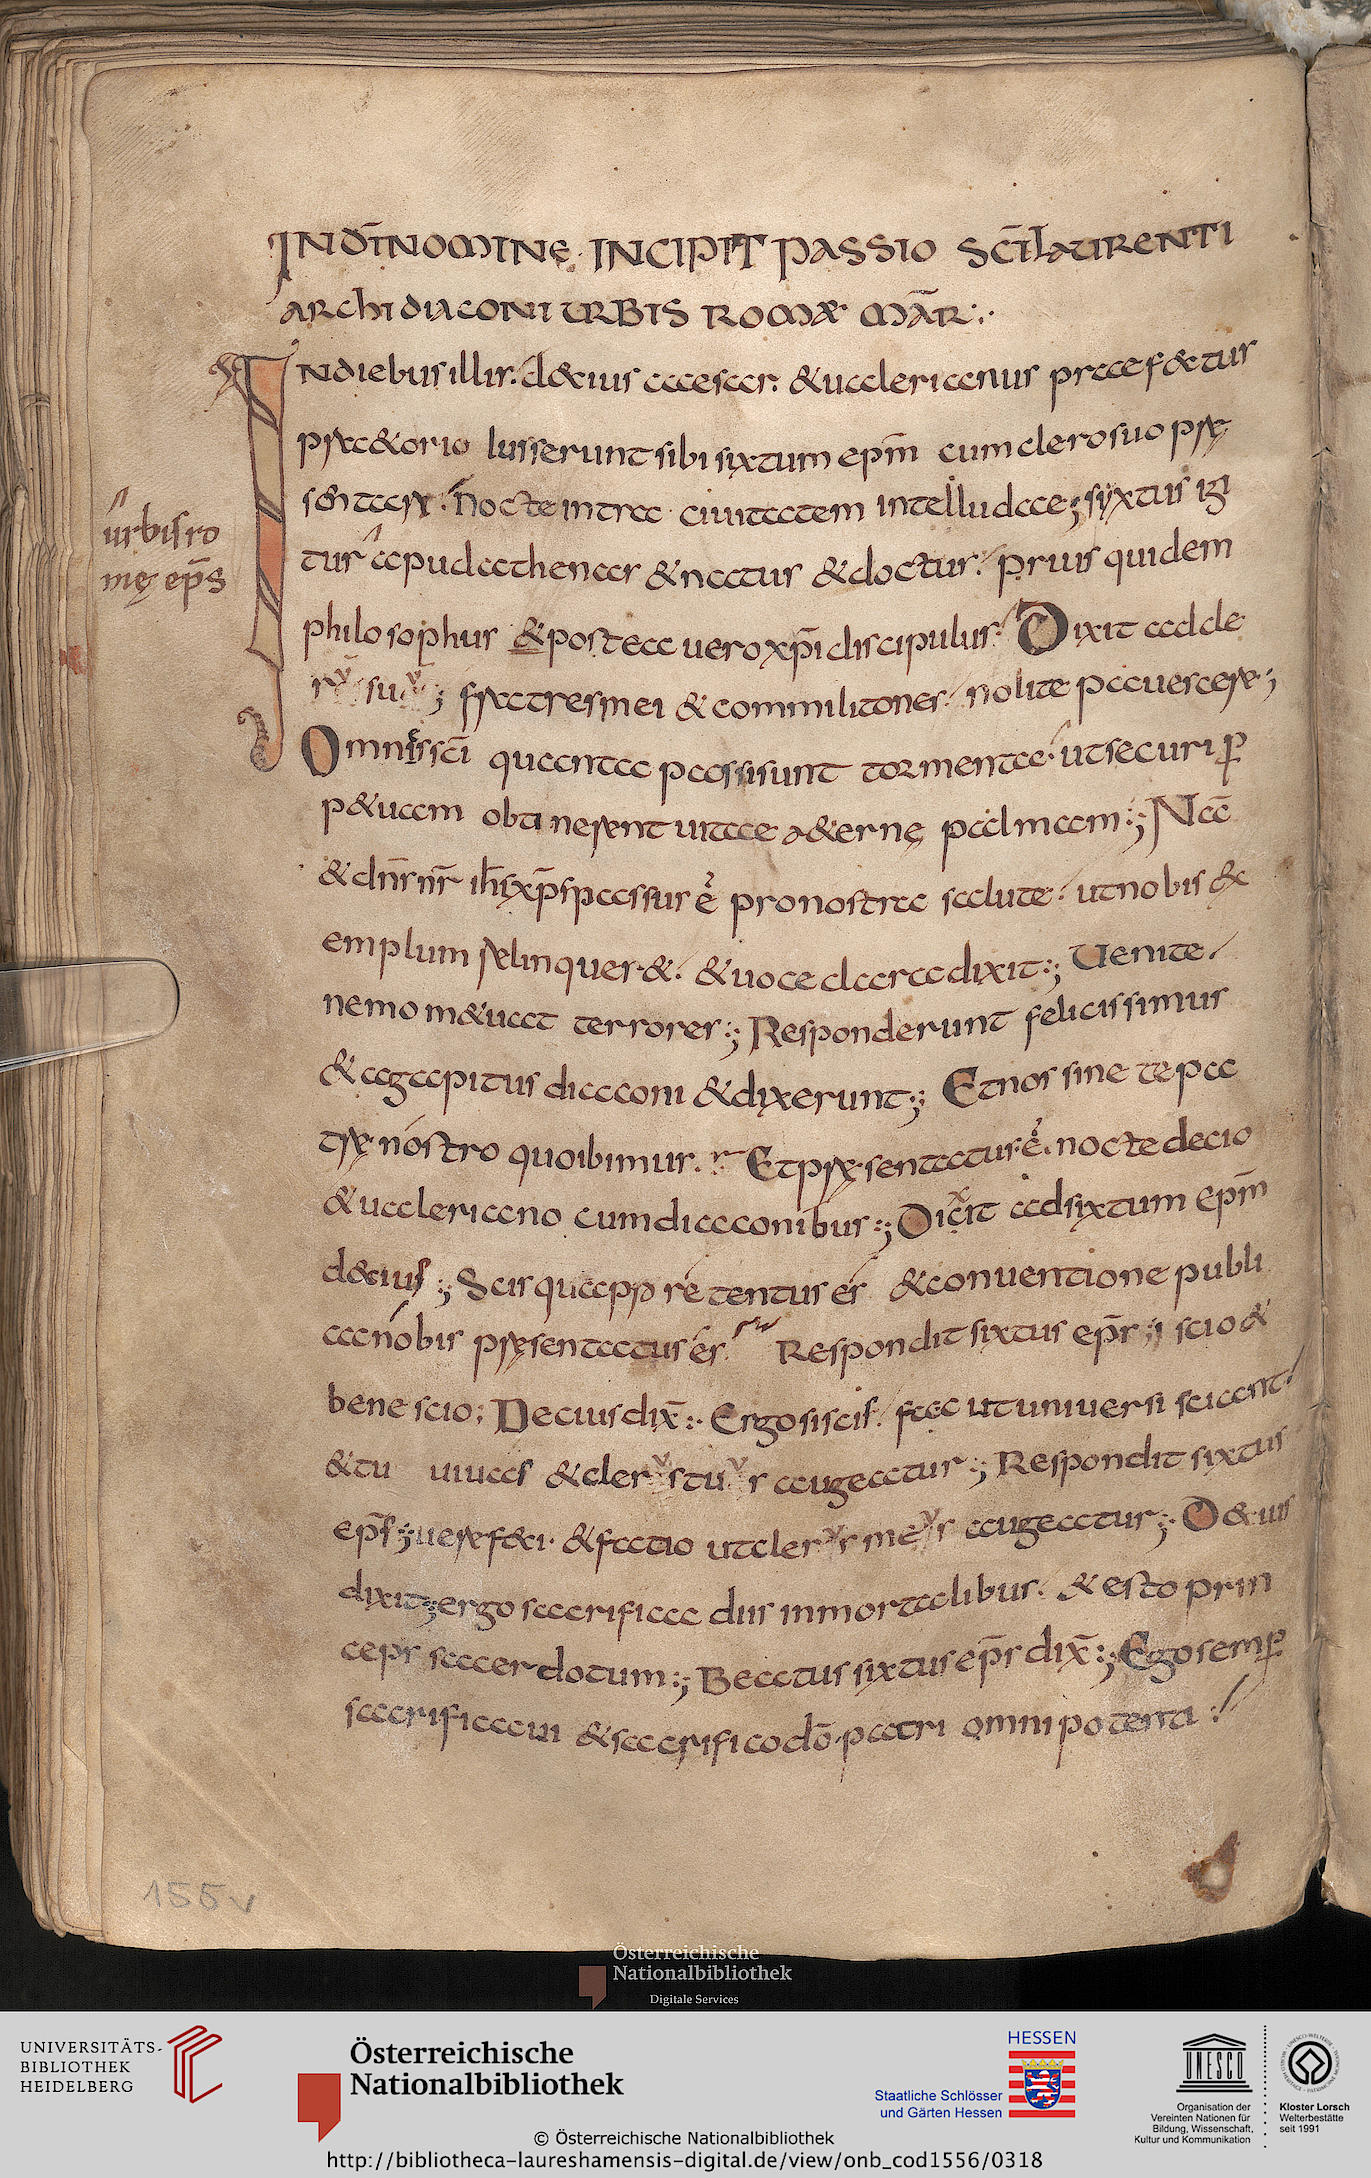 IN DI NOMINE INCIPIT PASSIO SCI LAURENTI
ARCHIDIACONI URBIS ROMAE MAR
INdiebus illis. decius caesar. & ualerianus praefectus
praetorio Iusserunt sibi sixtum epm cum clero suo prae
sentari. nocte intra ciuitatem intelludae; syxtus igi
urbis ro
mę eps
tur apud athenas & natus & doctus. prius quidem
philosophus & postea uero xpi discipulus. Dixit ad cle
rū suū; fratres mei & commilitones. nolite pauescere;
Omnes sci quanta passi sunt tormenta. ut securi p
p&uam obtinerent uitae aeternę palmam; Na
& dns nr ihs xps passus ē pro nostra salute. ut nobis ex
emplum relinquer&. & uoce clara dixit; Uenite.
nemo m&uat terrores; Responderunt felicissimus
& agapitus diaconi & dixerunt; Et nos sine te pa
tre nostro quo ibimus. Et praesentatus ē. nocte decio
& ualeriano cum diaconibus; Dixit ad sixtum epm
decius; Scis quapp re tentus es & conuentione publi
ca nobis pręsentatus es. Respondit sixtus eps; scio &
bene scio; Decius dix. Ergo si scis. fac ut uniuersi sciant.
& tu uiuas & clerus tuus augeatur; Respondit sixtus
eps; uere feci. & facio ut clerus meus augeatur; Decius
dixit; ergo sacrifica diis inmortalibus. & esto prin
ceps sacerdotum; Beatus sixtus eps dix; Ego semp
sacrificaui & sacrifico do patri omnipotenti
155v
Österreichische
Nationalbibliothek
Digitale Services
UNIVERSITÄTS-
BIBLIOTHEK
HEIDELBERG
Österreichische
Nationalbibliothek
HESSEN
Staatliche Schlösser
und Gärten Hessen
UNESCO
Organisation der
Vereinten Nationen für
Bildung, Wissenschaft,
Kultur und Kommunikation
Kloster Lorsch
Welterbestätte
seit 1991
© Österreichische Nationalbibliothek
http://bibliotheca-laureshamensis-digital.de/view/onb_cod1556/0318